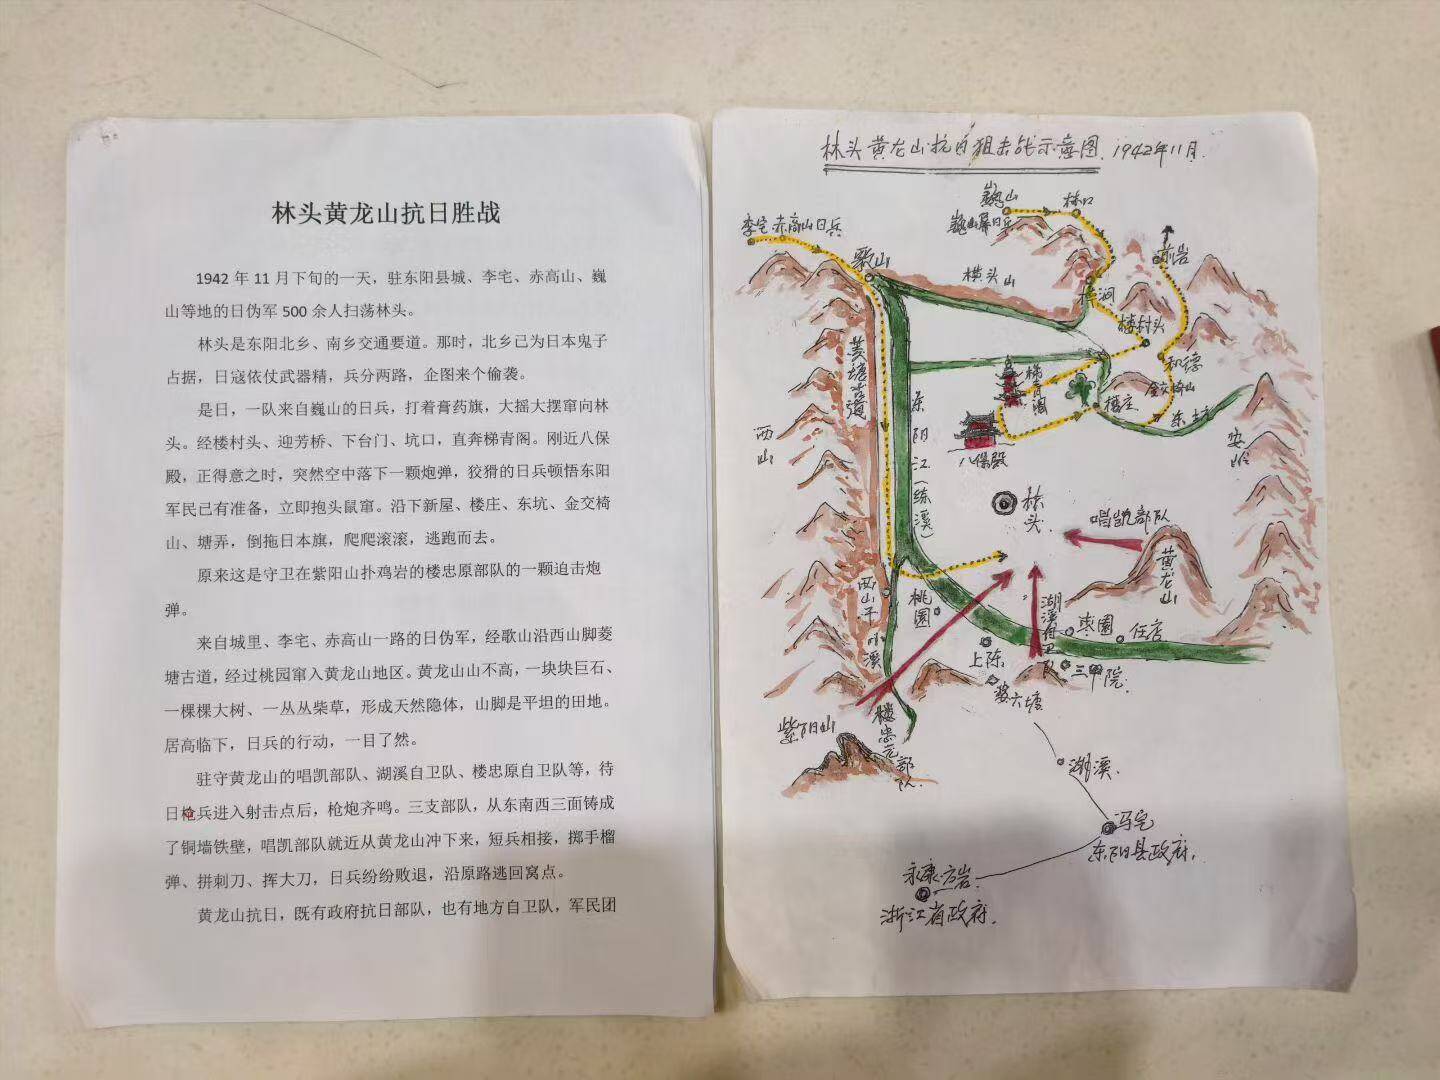 林头黄龙山抗日胜战
1942 年 11 月下旬的一天，驻东阳县城、李宅、赤高山、巍
山等地的日伪军 500 余人扫荡林头。
林头是东阳北乡、南乡交通要道。那时，北乡已为日本鬼子
占据，日寇依仗武器精，兵分两路，企图来个偷袭。
是日，一队来自巍山的日兵，打着膏药旗，大摇大摆窜向林
头。经楼村头、迎芳桥、下台门、坑口，直奔梯青阁。刚近八保
殿，正得意之时，突然空中落下一颗炮弹，狡猾的日兵顿悟东阳
军民已有准备，立即抱头鼠窜。沿下新屋、楼庄、东坑、金交椅
山、塘弄，倒拖日本旗，爬爬滚滚，逃跑而去。
原来这是守卫在紫阳山扑鸡岩的楼忠原部队的一颗迫击炮
弹。
来自城里、李宅、赤高山一路的日伪军，经歌山沿西山脚菱
塘古道，经过桃园窜入黄龙山地区。黄龙山山不高，一块块巨石、
一棵棵大树、一丛丛柴草，形成天然隐体，山脚是平坦的田地。
居高临下，日兵的行动，一目了然。
驻守黄龙山的唱凯部队、湖溪自卫队、楼忠原自卫队等，待
日枪兵进入射击点后，枪炮齐鸣。三支部队，从东南西三面铸成
了铜墙铁壁，唱凯部队就近从黄龙山冲下来，短兵相接，掷手榴
弹、拼刺刀、挥大刀，日兵纷纷败退，沿原路逃回窝点。
黄龙山抗日，既有政府抗日部队，也有地方自卫队，军民团
林头黄龙山抗日狙击战示意图 1942年11月
巍山
林口
李宅 赤高山日兵
巍山屏日兵
歌山
横头山
前岩
楼村头
和德
菱塘古道
梯青阁
金交椅山
楼庄
东
西山
东阳江（练溪）
八保殿
林头
唱凯部队
黄龙山
西山干
桃园
小溪
湖溪自卫队
枣园
任店
上陈
三甲院
紫阳山
楼忠元部队
湖溪
冯宅
东阳县政府
永康方岩
浙江省政府